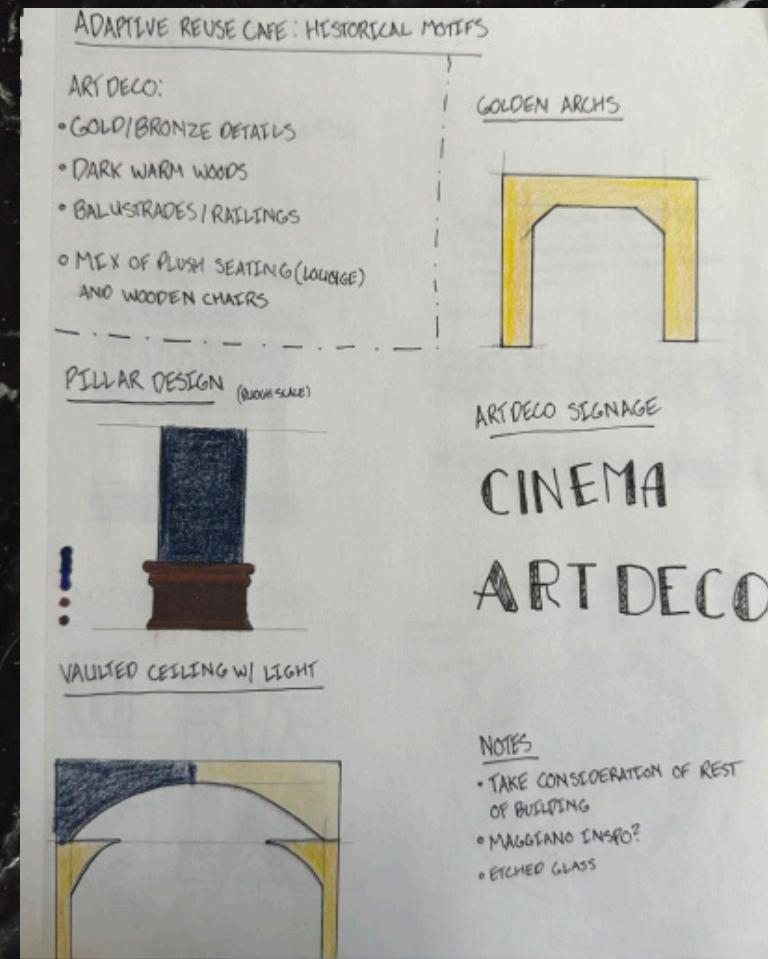 ADAPTIVE REUSE CAFE: HISTORICAL MOTIFS
ART DECO:
• GOLD/BRONZE DETAILS
• DARK WARM WOODS
• BALUSTRADES/RAILINGS
• MIX OF PLUSH SEATING (LOUNGE)
AND WOODEN CHAIRS
GOLDEN ARCHS
PILLAR DESIGN (ROUGH SCALE)
ART DECO SIGNAGE
CINEMA
ART DECO
VAULTED CEILING W/ LIGHT
NOTES
• TAKE CONSIDERATION OF REST
OF BUILDING
• MAGGIANO INSPO?
• ETCHED GLASS